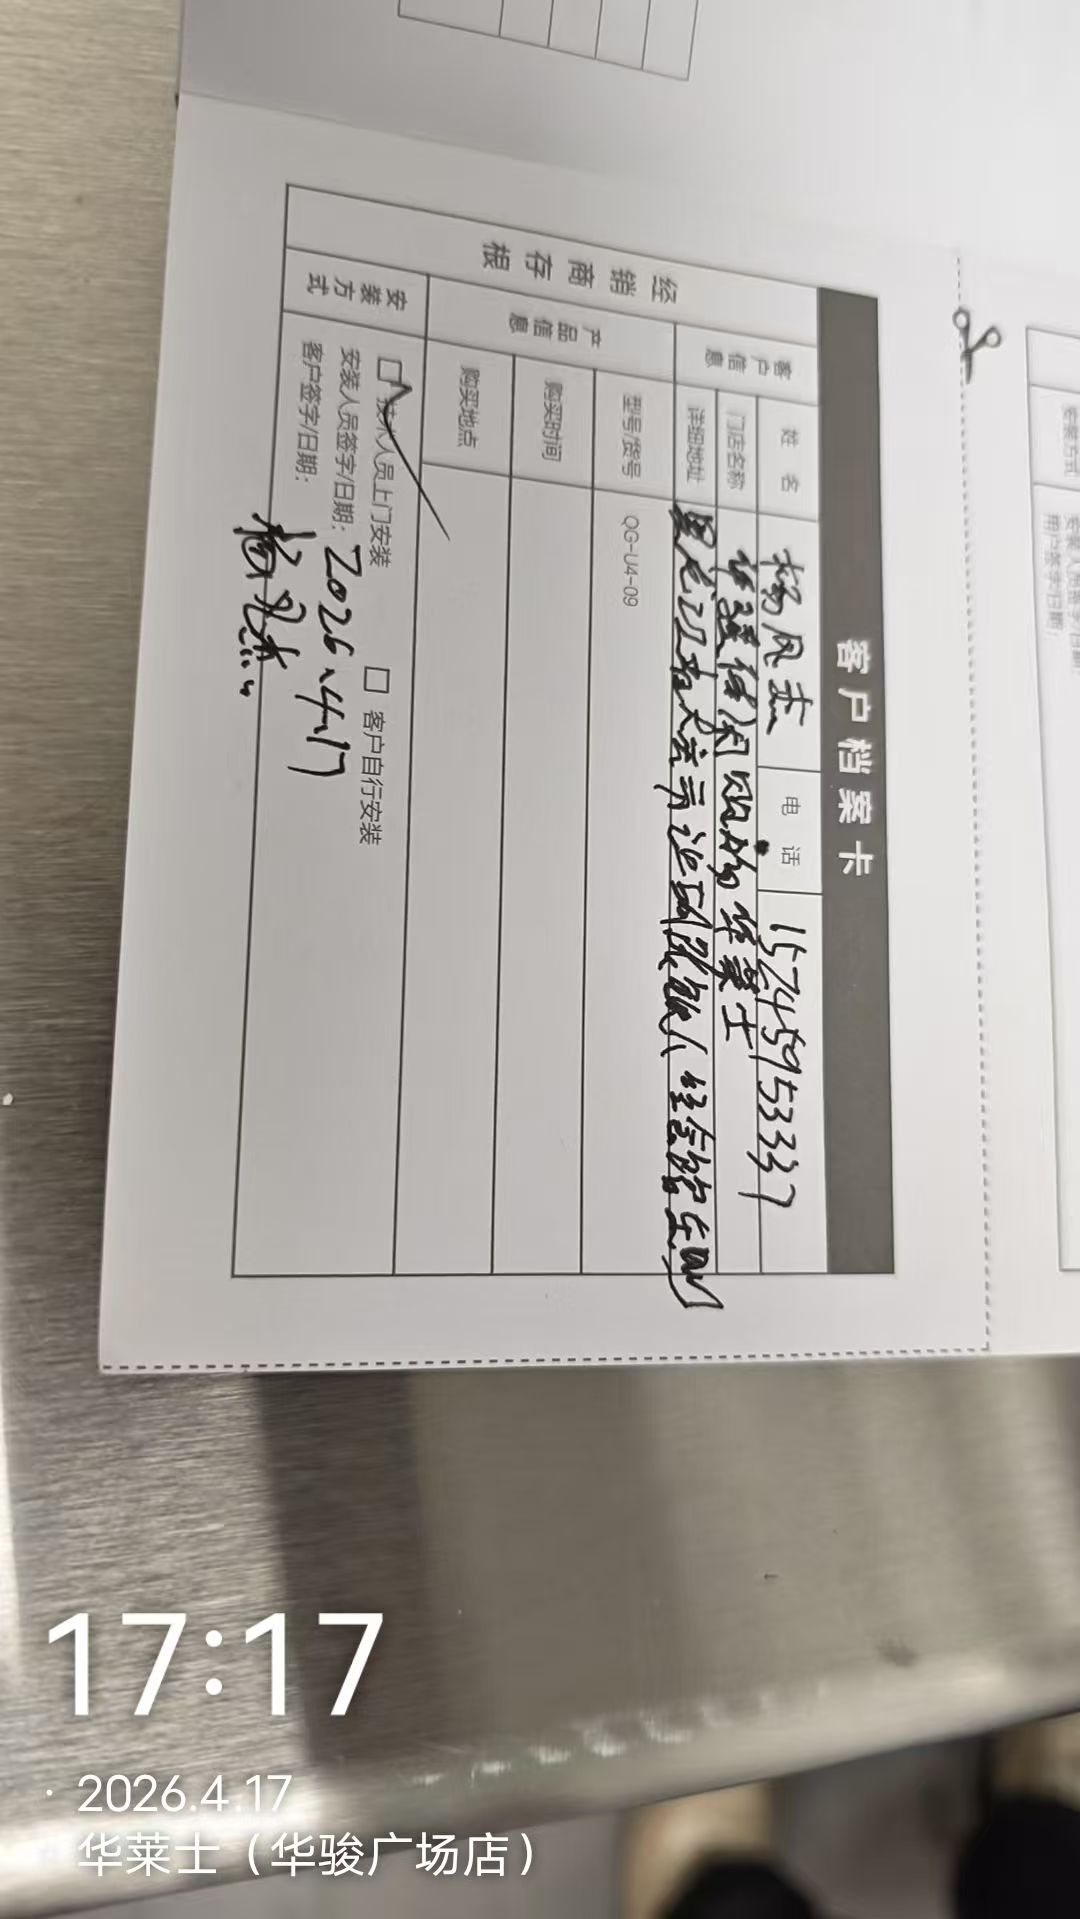 客户档案卡
经销商存根
客户信息
姓名 杨风杰 电话 15745953337
门店名称 华骏休闲购物华莱士
详细地址 黑龙江省大庆市让胡路
产品信息
型号/货号 QG-U4-09
购买时间
购买地点
安装方式
技术人员上门安装 客户自行安装
安装人员签字/日期: 2026.4.17
客户签字/日期: 杨风杰
安装方式
17:17
2026.4.17
华莱士（华骏广场店）